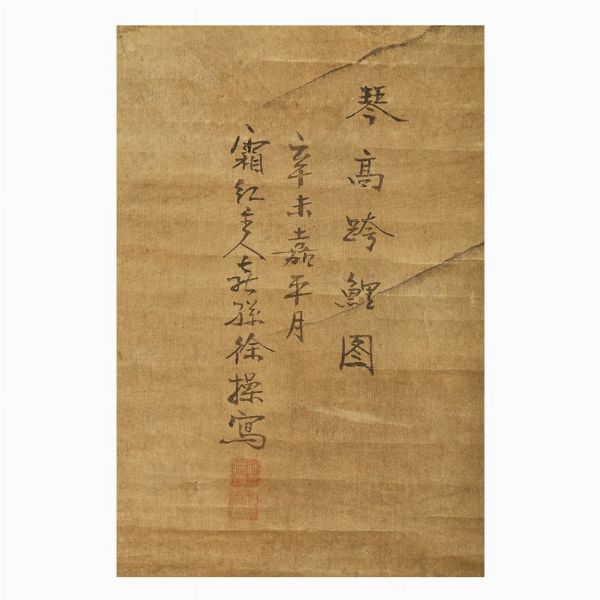 琴高跨鯉图
辛未嘉平月
霜红主人燕孫徐操寫